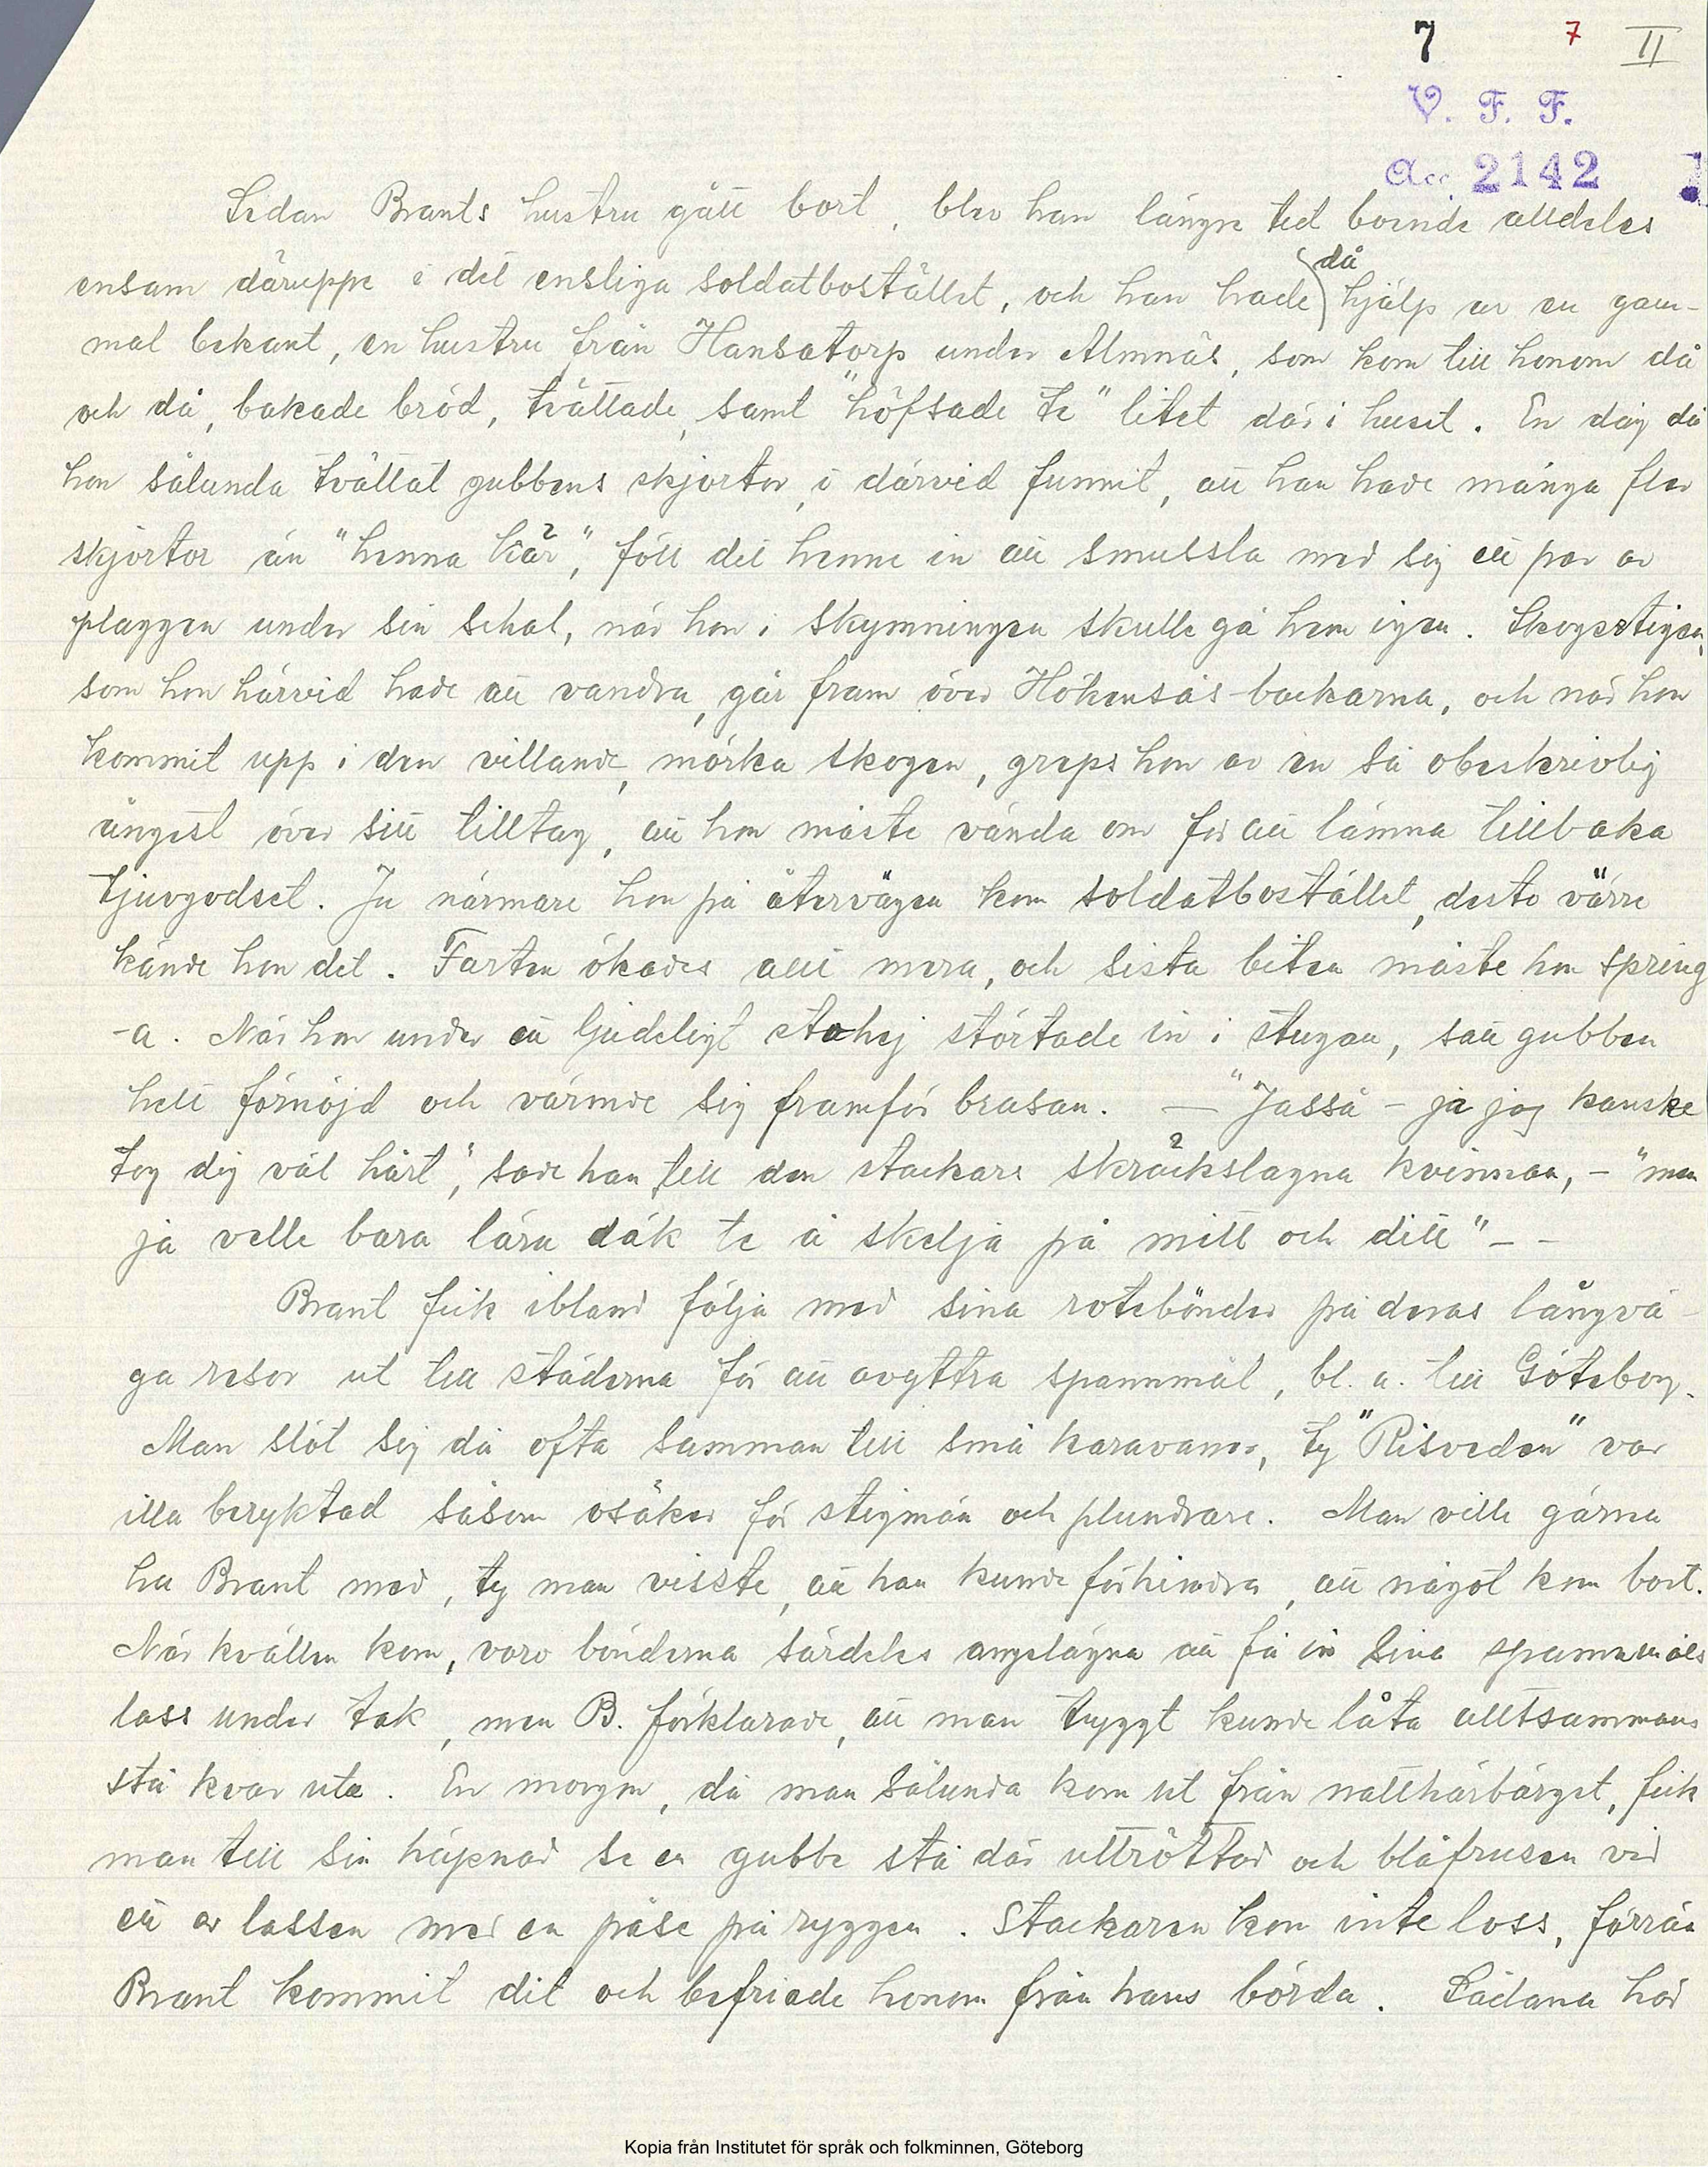 7 7 II
V. F. F.
Acc 2142
Sedan Brants hustru gått bort, blev han längre tid boende alldeles
ensam däruppe i det ensliga soldatbostället, och han hade då hjälp av en gam-
mal bekant, en hustru från Hansatorp under Almnäs, som kom till honom då
och då, bakade bröd, tvättade, samt "höfsade te" litet där i huset. En dag då
hon sålunda tvättat gubbens skjortor, o därvid funnit, att han hade många fler
skjortor än "henna kar", föll det henne in att smussla med sig ett par av
plaggen under sin schal, när hon i skymningen skulle gå hem igen. Skogsstigen,
som hon härvid hade att vandra, går fram över Hökensås-backarna, och när hon
kommit upp i den villande, mörka skogen, greps hon av en så obeskrivlig
ångest över sitt tilltag, att hon måste vända om för att lämna tillbaka
tjuvgodset. Ju närmare hon på återvägen kom soldatbostället, desto värre
kände hon det. Farten ökades allt mera, och sista biten måste hon spring
-a. När hon under ett ljudeligt stohej störtade in i stugan, satt gubben
helt förnöjd och värmde sig framför brasan. — "Jasså - ja jag kanske
tog dig väl hårt", sade han till den stackars skräckslagna kvinnan, - "men
ja velle bara lära däk te å skelja på mitt och ditt" - -
Brant fick ibland följa med sina rotebönder på deras långvä-
ga resor ut till städerna för att avyttra spannmål, bl. a. till Göteborg.
Man slöt sig då ofta samman till små karavaner, ty "Risveden" var
illa beryktad såsom osäker för stigmän och plundrare. Man ville gärna
ha Brant med, ty man visste, att han kunde förhindra, att något kom bort.
När kvällen kom, voro bönderna särdeles angelägna att få in sina spannmåls
lass under tak, men B. förklarade, att man tryggt kunde låta alltsammans
stå kvar ute. En morgon, då man sålunda kom ut från natthärbärget, fick
man till sin häpnad se en gubbe stå där uttröttad och blåfrusen vid
ett av lassen med en påse på ryggen. Stackaren kom inte loss, förrän
Brant kommit dit och befriade honom från hans börda. Sådana här
Kopia från Institutet för språk och folkminnen, Göteborg